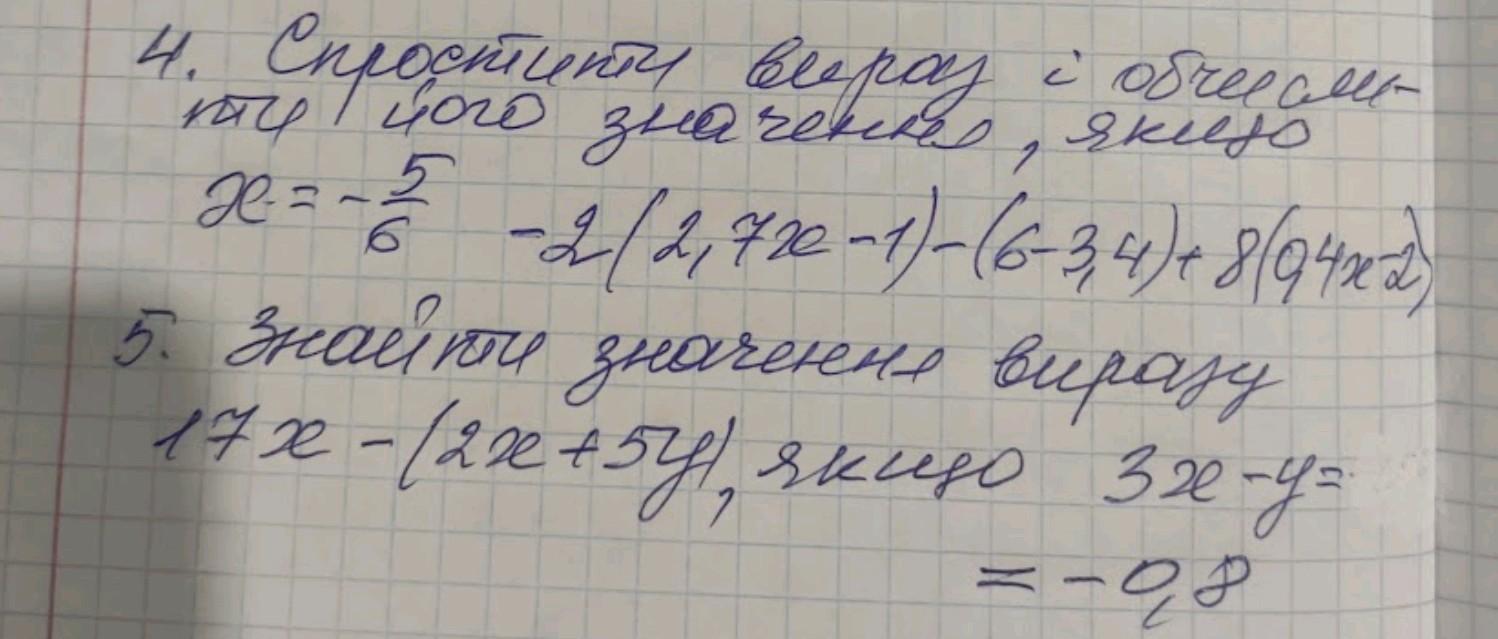 4. Спростити вираз і обчисли-
ти його значення, якщо
x = -5/6 -2(2,7x-1)-(6-3,4)+8(0,4x-2)
5. Знайти значення виразу
17x-(2x+5y), якщо 3x-y=
= -0,8